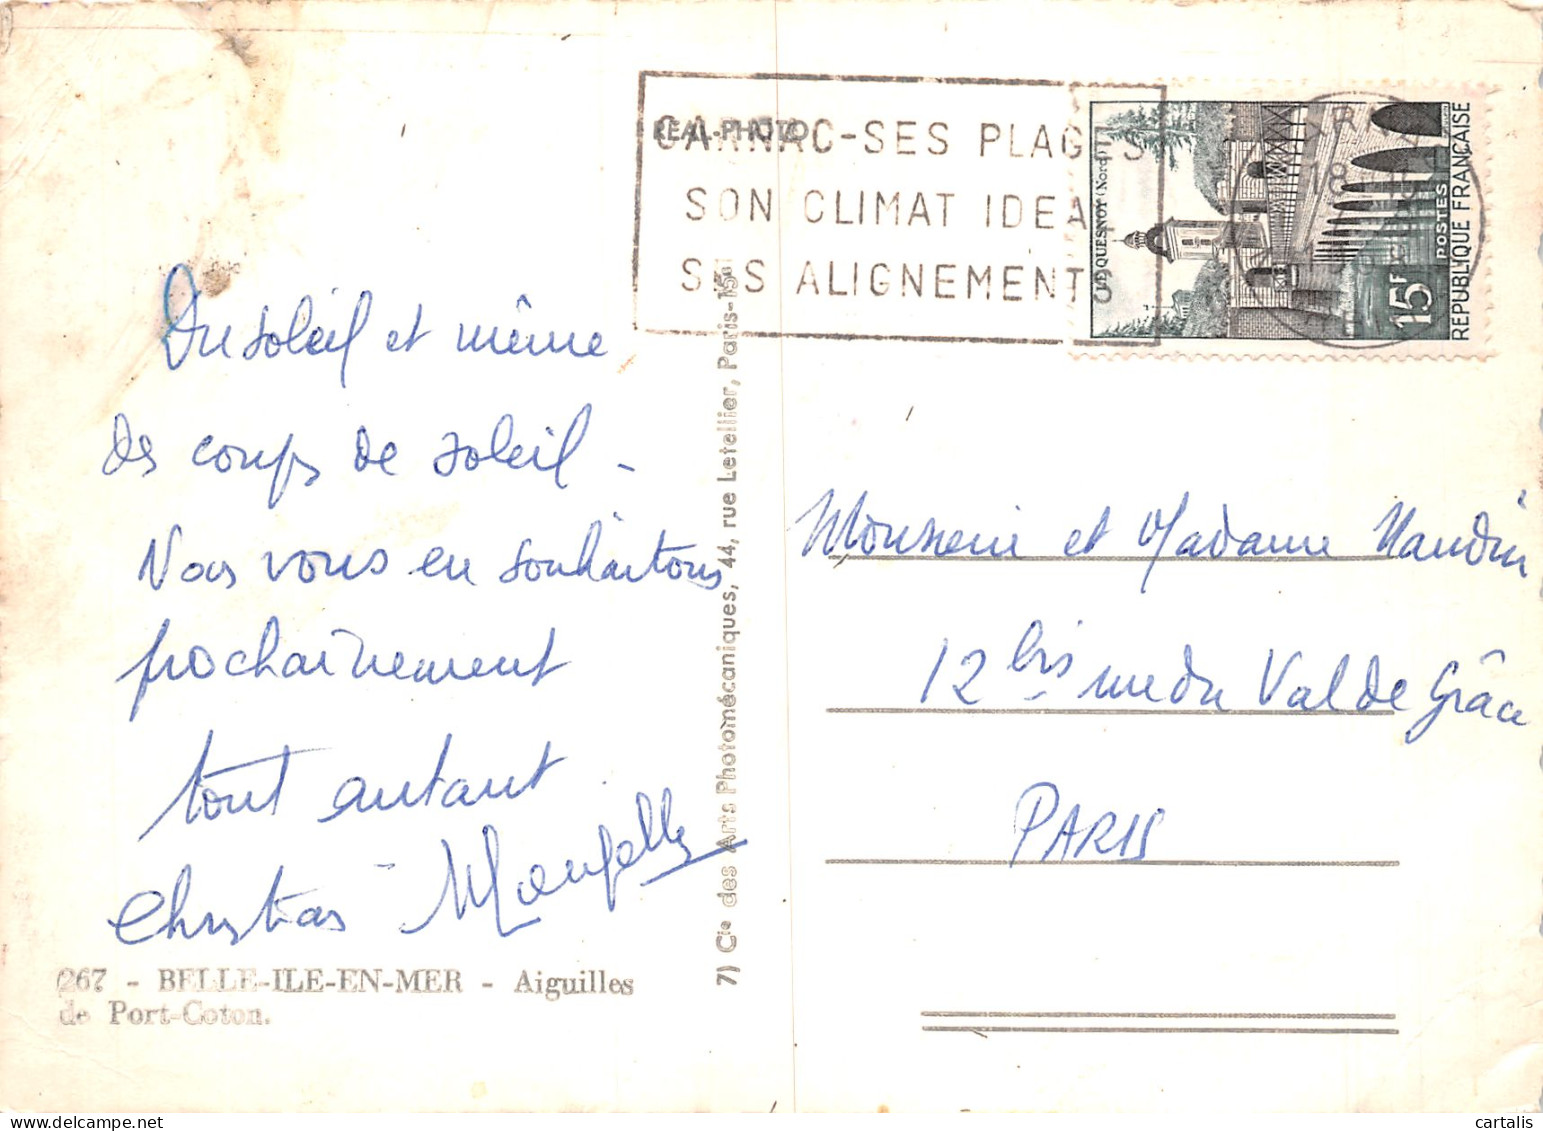 REAL-PHOTO
CARNAC-SES PLAGES
SON CLIMAT IDEAL
SES ALIGNEMENTS
LE QUESNOY (Nord)
15F
POSTES
REPUBLIQUE FRANÇAISE
Du soleil et même
des coups de soleil -
Nous vous en souhaitons
prochainement
tout autant
Christian
267 - BELLE-ILE-EN-MER - Aiguilles
de Port-Coton.
7) Cie des Arts Photomécaniques, 44, rue Letellier, Paris-15e
Monsieur et Madame Naudin
12 bis rue du Val de Grâce
PARIS
cartalis